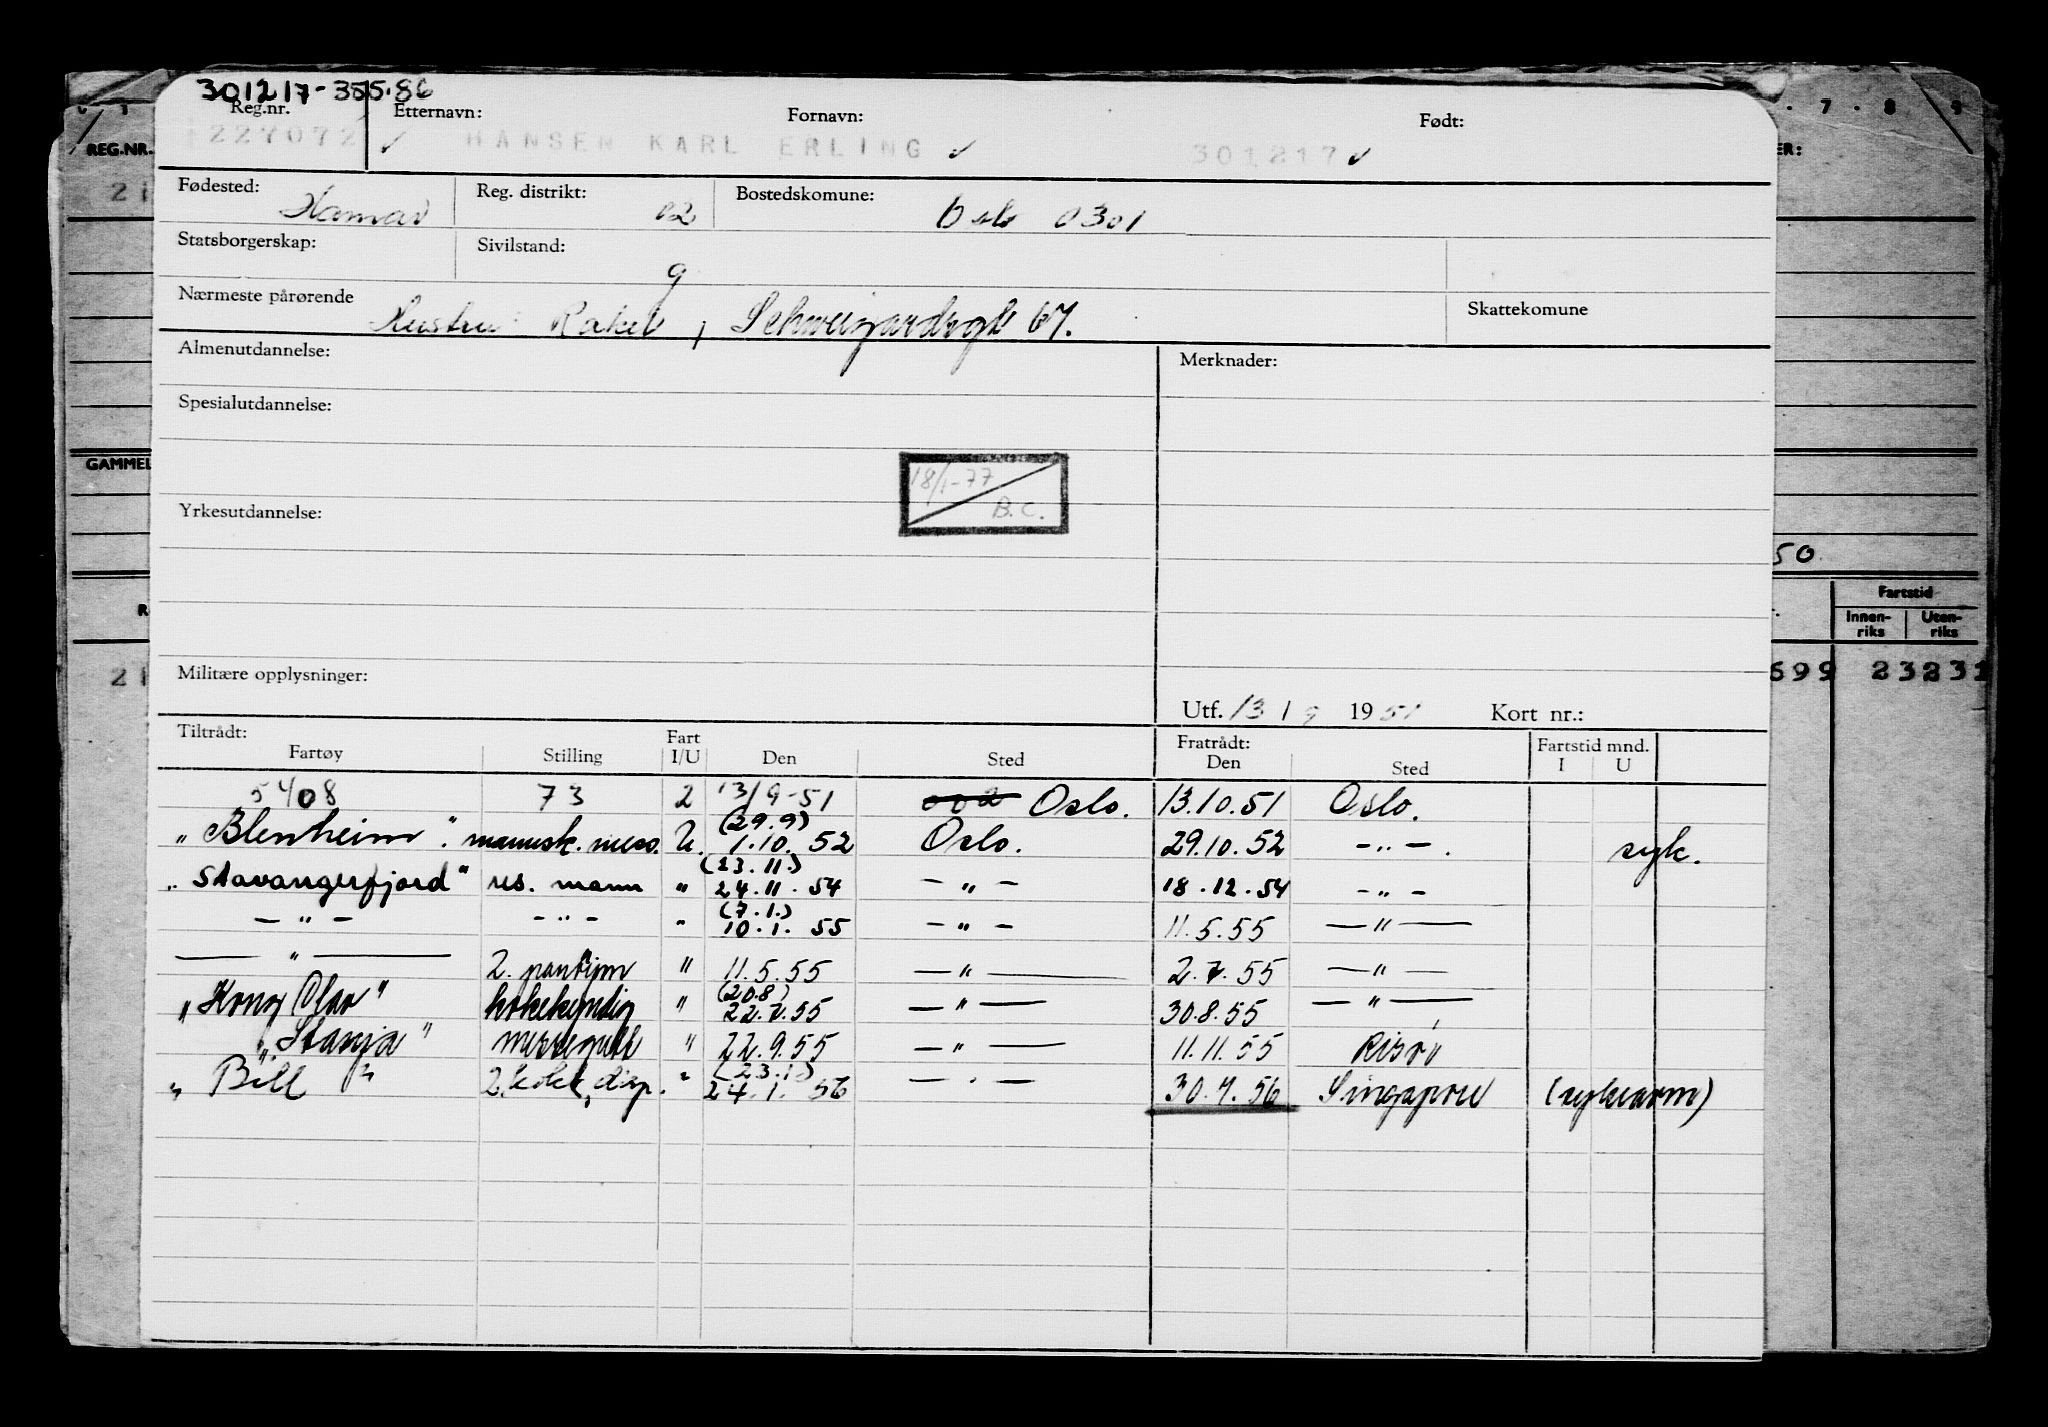 301217-355.86
Reg.nr. Etternavn: Fornavn: Født:
227072 HANSEN KARL ERLING 301217
Fødested: Hamar Reg. distrikt: 02 Bostedskomune: Oslo 0301
Statsborgerskap: Sivilstand: g
Nærmeste pårørende Hustru: Rakel, Schweigaardsgt 67. Skattekomune
Almenutdannelse: Merknader:
Spesialutdannelse:
18/1-77
B.C.
Yrkesutdannelse:
Militære opplysninger:
Utf. 13/9 1951 Kort nr.:
Tiltrådt: Fart Fratrådt: Fartstid mnd.
Fartøy Stilling I/U Den Sted Den Sted I U
5408 73 2 13/9-51 002 Oslo. 13.10.51 Oslo.
(29.9)
"Blenheim". mannsk. mess. U. 1.10.52 Oslo. 29.10.52 -"-. syk.
(23.11.)
"Stavangerfjord" res. mann " 24.11.54 -"- 18.12.54 -"-
(7.1.)
-"- -"- " 10.1.55 -"- 11.5.55 -"-
-"- 2. " 11.5.55 -"- 2.7.55 -"-
(20.8)
"Kong Olav" kokekyndig " 22.7.55 -"- 30.8.55 -"-
"Stanja" messegutt " 22.9.55 -"- 11.11.55 Risør
(23.1)
"Bill" 2. kokk, disp. " 24.1.56 -"- 30.4.56 Singapore (sykearm)
REG.NR.
21
GAMMEL
21
7 · 8 9
ER:
50
Fartstid
Innen-riks Uten-riks
699 23231